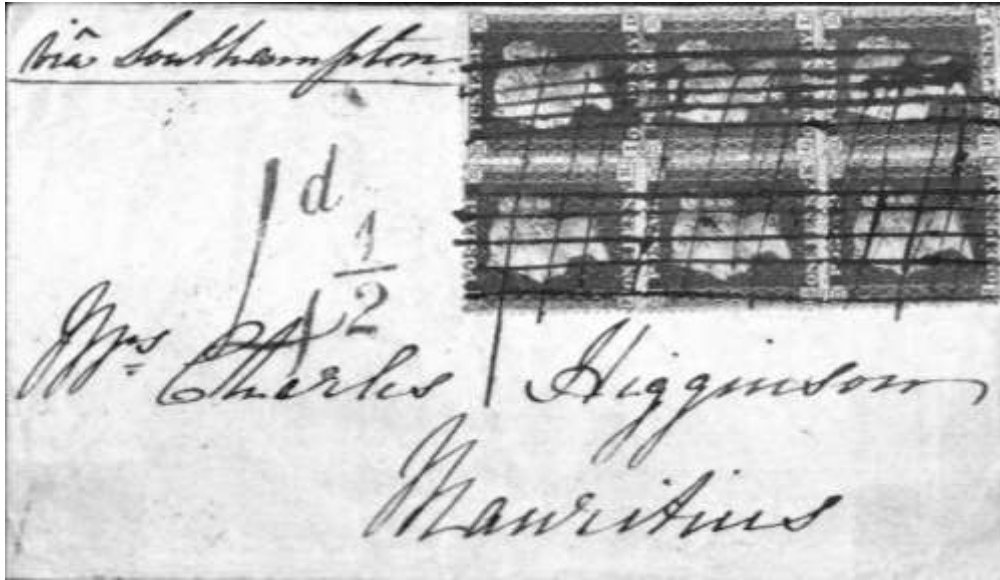 via Southampton
1 d
1/2
Mrs Charles Higginson
Mauritius